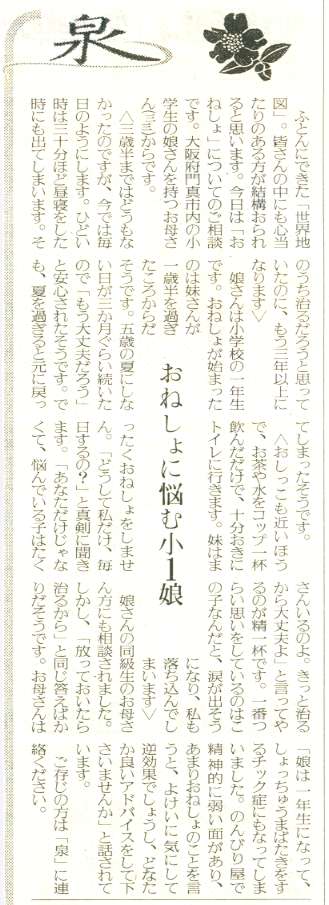 泉
おねしょに悩む小1娘
ふとんにできた「世界地
図」。皆さんの中にも心当
たりのある方が結構おられ
ると思います。今日は「お
ねしょ」についてのご相談
です。大阪府門真市内の小
学生の娘さんを持つお母さ
ん(三三)からです。
〈三歳半まではどうもな
かったのですが、今では毎
日のようにします。ひどい
時は三十分ほど昼寝をした
時にも出てしまいます。そ
のうち治るだろうと思って
いたのに、もう三年以上に
なります〉
娘さんは小学校の一年生
です。おねしょが始まった
のは妹さんが
一歳半を過ぎ
たころからだ
そうです。五歳の夏にしな
い日が三か月ぐらい続いた
ので「もう大丈夫だろう」
と安心されたそうです。で
も、夏を過ぎると元に戻っ
てしまったそうです。
〈おしっこも近いほう
で、お茶や水をコップ一杯
飲んだだけで、十分おきに
トイレに行きます。妹はま
ったくおねしょをしませ
ん。「どうして私だけ、毎
日するの?」と真剣に聞き
ます。「あなただけじゃな
くて、悩んでいる子はたく
さんいるのよ。きっと治る
から大丈夫よ」と言ってや
るのが精一杯です。一番つ
らい思いをしているのはこ
の子なんだと、涙が出そう
になり、私も
落ち込んでし
まいます〉
娘さんの同級生のお母さ
ん方にも相談されました。
しかし、「放っておいたら
治るから」と同じ答えばか
りだそうです。お母さんは
「娘は一年生になって、
しょっちゅうまばたきをす
るチック症にもなってしま
いました。のんびり屋で
精神的に弱い面があり、
あまりおねしょのことを言
うと、よけいに気にして
逆効果でしょうし、どなた
か良いアドバイスをして下
さいませんか」と話されて
います。
ご存じの方は「泉」に連
絡ください。